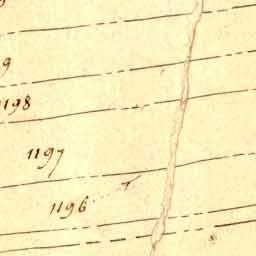 9
1198
1197
1196